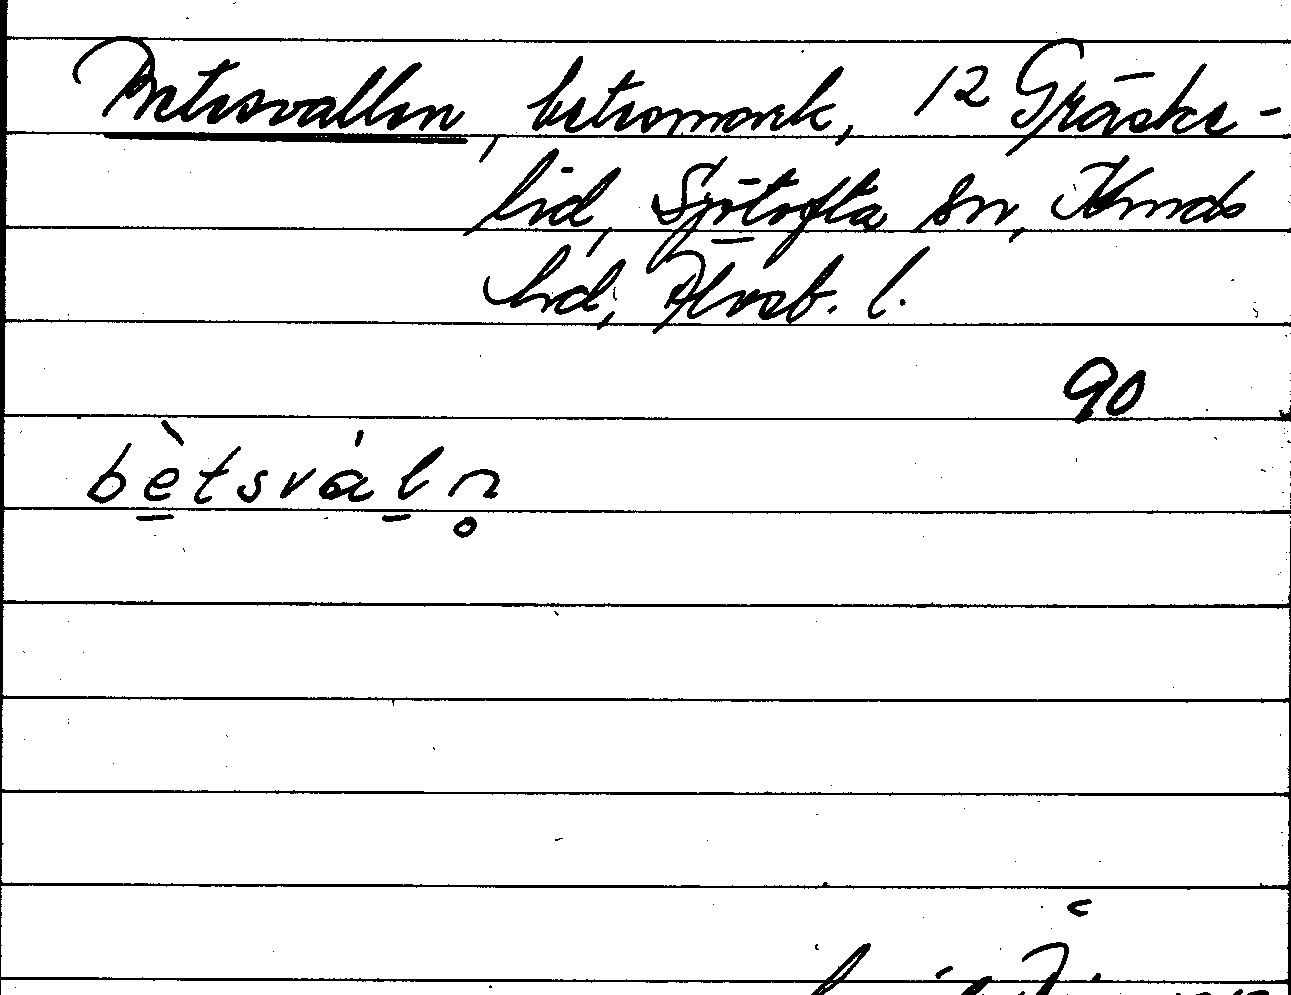 Betesvallen, betesmark, 12 Gräske-
lid, Sjötofta sn, Kinds
hd, Älvsb. l.
90
bètsváln̥